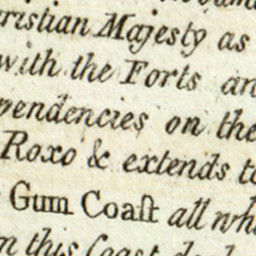 ristian Majesty as
with the Forts an
pendencies on the
Roxo & extends to
Gum Coaſt all wh
n this Coast